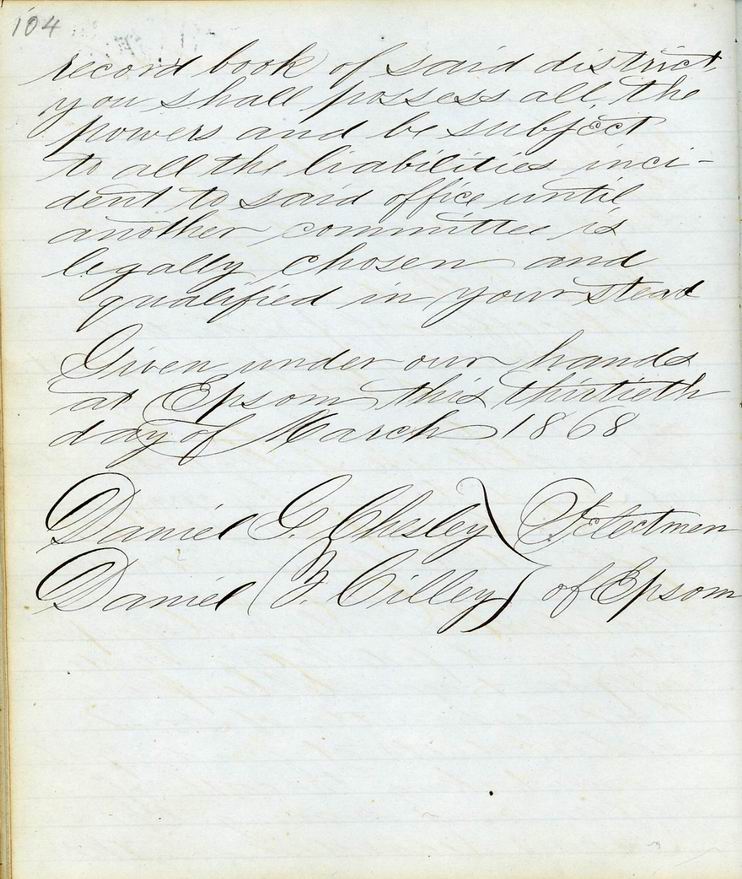 104
record book of said district,
you shall possess all, the
powers and be subject
to all the liabilities inci-
dent to said office until
another committee is
legally chosen and
qualified in your stead
Given under our hands
at Epsom this thirtieth
day of March 1868
Daniel G. Chesley } Selectmen
Daniel F. Cilley } of Epsom